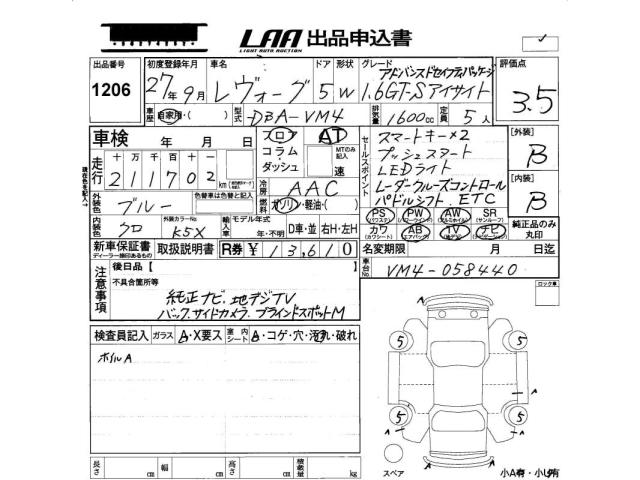 LAA 出品申込書
LIGHT AUTO AUCTION
出品番号 初度登録年月 車名 ドア 形状 グレード 評価点
1206 27年9月 レヴォーグ 5 W アドバンスドセイフティパッケージ
1.6GT-S アイサイト 3.5
車歴 自家用・( ) 型式 DBA-VM4 排気量 1600cc 定員 5人
車検 年 月 日 フロア AT
コラム MTのみ記入
ダッシュ 速
セールスポイント
スマートキー×2
プッシュスタート
LEDライト
レーダークルーズコントロール
パドルシフト、ETC
[外装]
B
[内装]
B
走行 十万 万 千 百 十 一
2 1 1 7 0 2 km
冷房 AAC
外装色 ブルー 色替車は色替と記入 燃料 ガソリン・軽油・( )
PS パワステ PW パワーウインドウ AW アルミホイル SR サンルーフ
カワ カワシート AB エアバック TV ナビ
純正品のみ丸印
内装色 クロ 外装カラーNo. K5X 輸入車 モデル年式 年・不明 D車・並 右H・左H
新車保証書 ディーラー捺印あるもの 取扱説明書 R券 ¥ 13,610
名変期限 月 日迄
注意事項 後日品 [
不具合箇所等
純正ナビ、地デジTV
バック、サイドカメラ、ブラインドスポットM
車台No. VM4-058440
ロック車
検査員記入 ガラス A・X要ス 室内シート A・コゲ・穴・汚れ・破れ
ホイルA
5 5
A
5 5
A A
A
長さ cm 幅 cm 高さ cm 積載量 kg
スペア 小A有・小U有